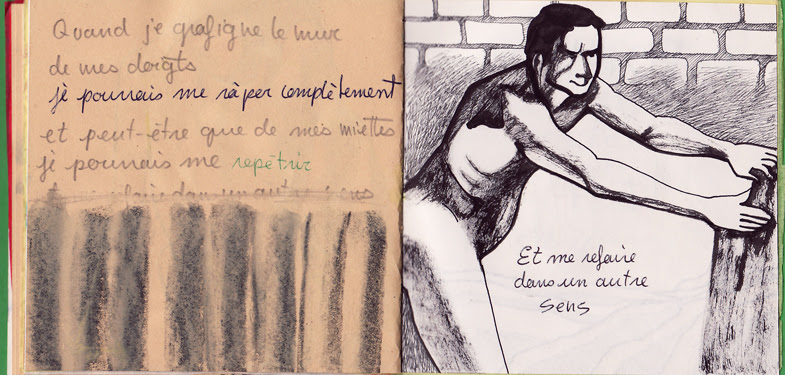 Quand je grafigne le mur
de mes doigts
je pourrais me râper complètement
et peut-être que de mes miettes
je pourrais me repétrir
refaire dans un autre sens
Et me refaire
dans un autre
sens